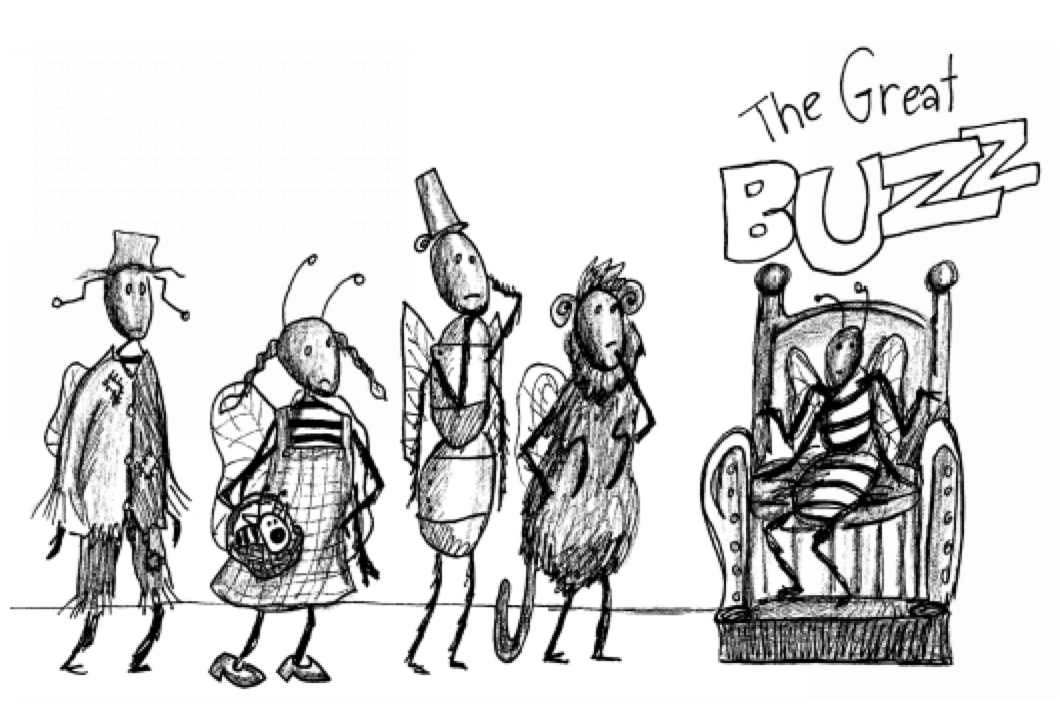 The Great
BUZZZ